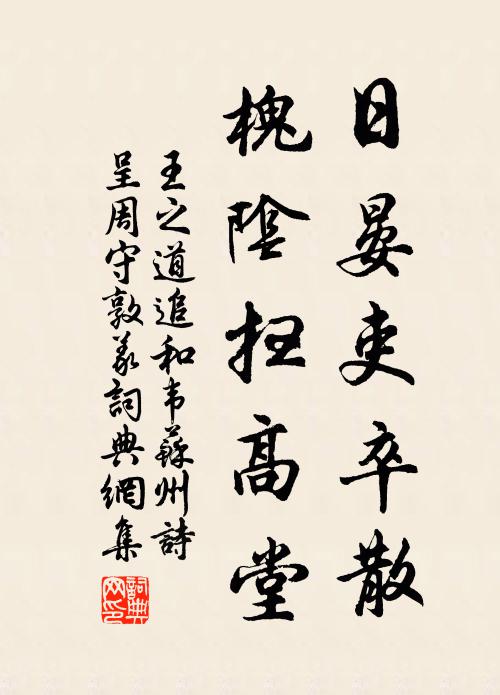 日晏吏卒散
槐陰抂高堂
王之道追和韦蘇州詩
呈周守敦義詞典網集
詞典
网印